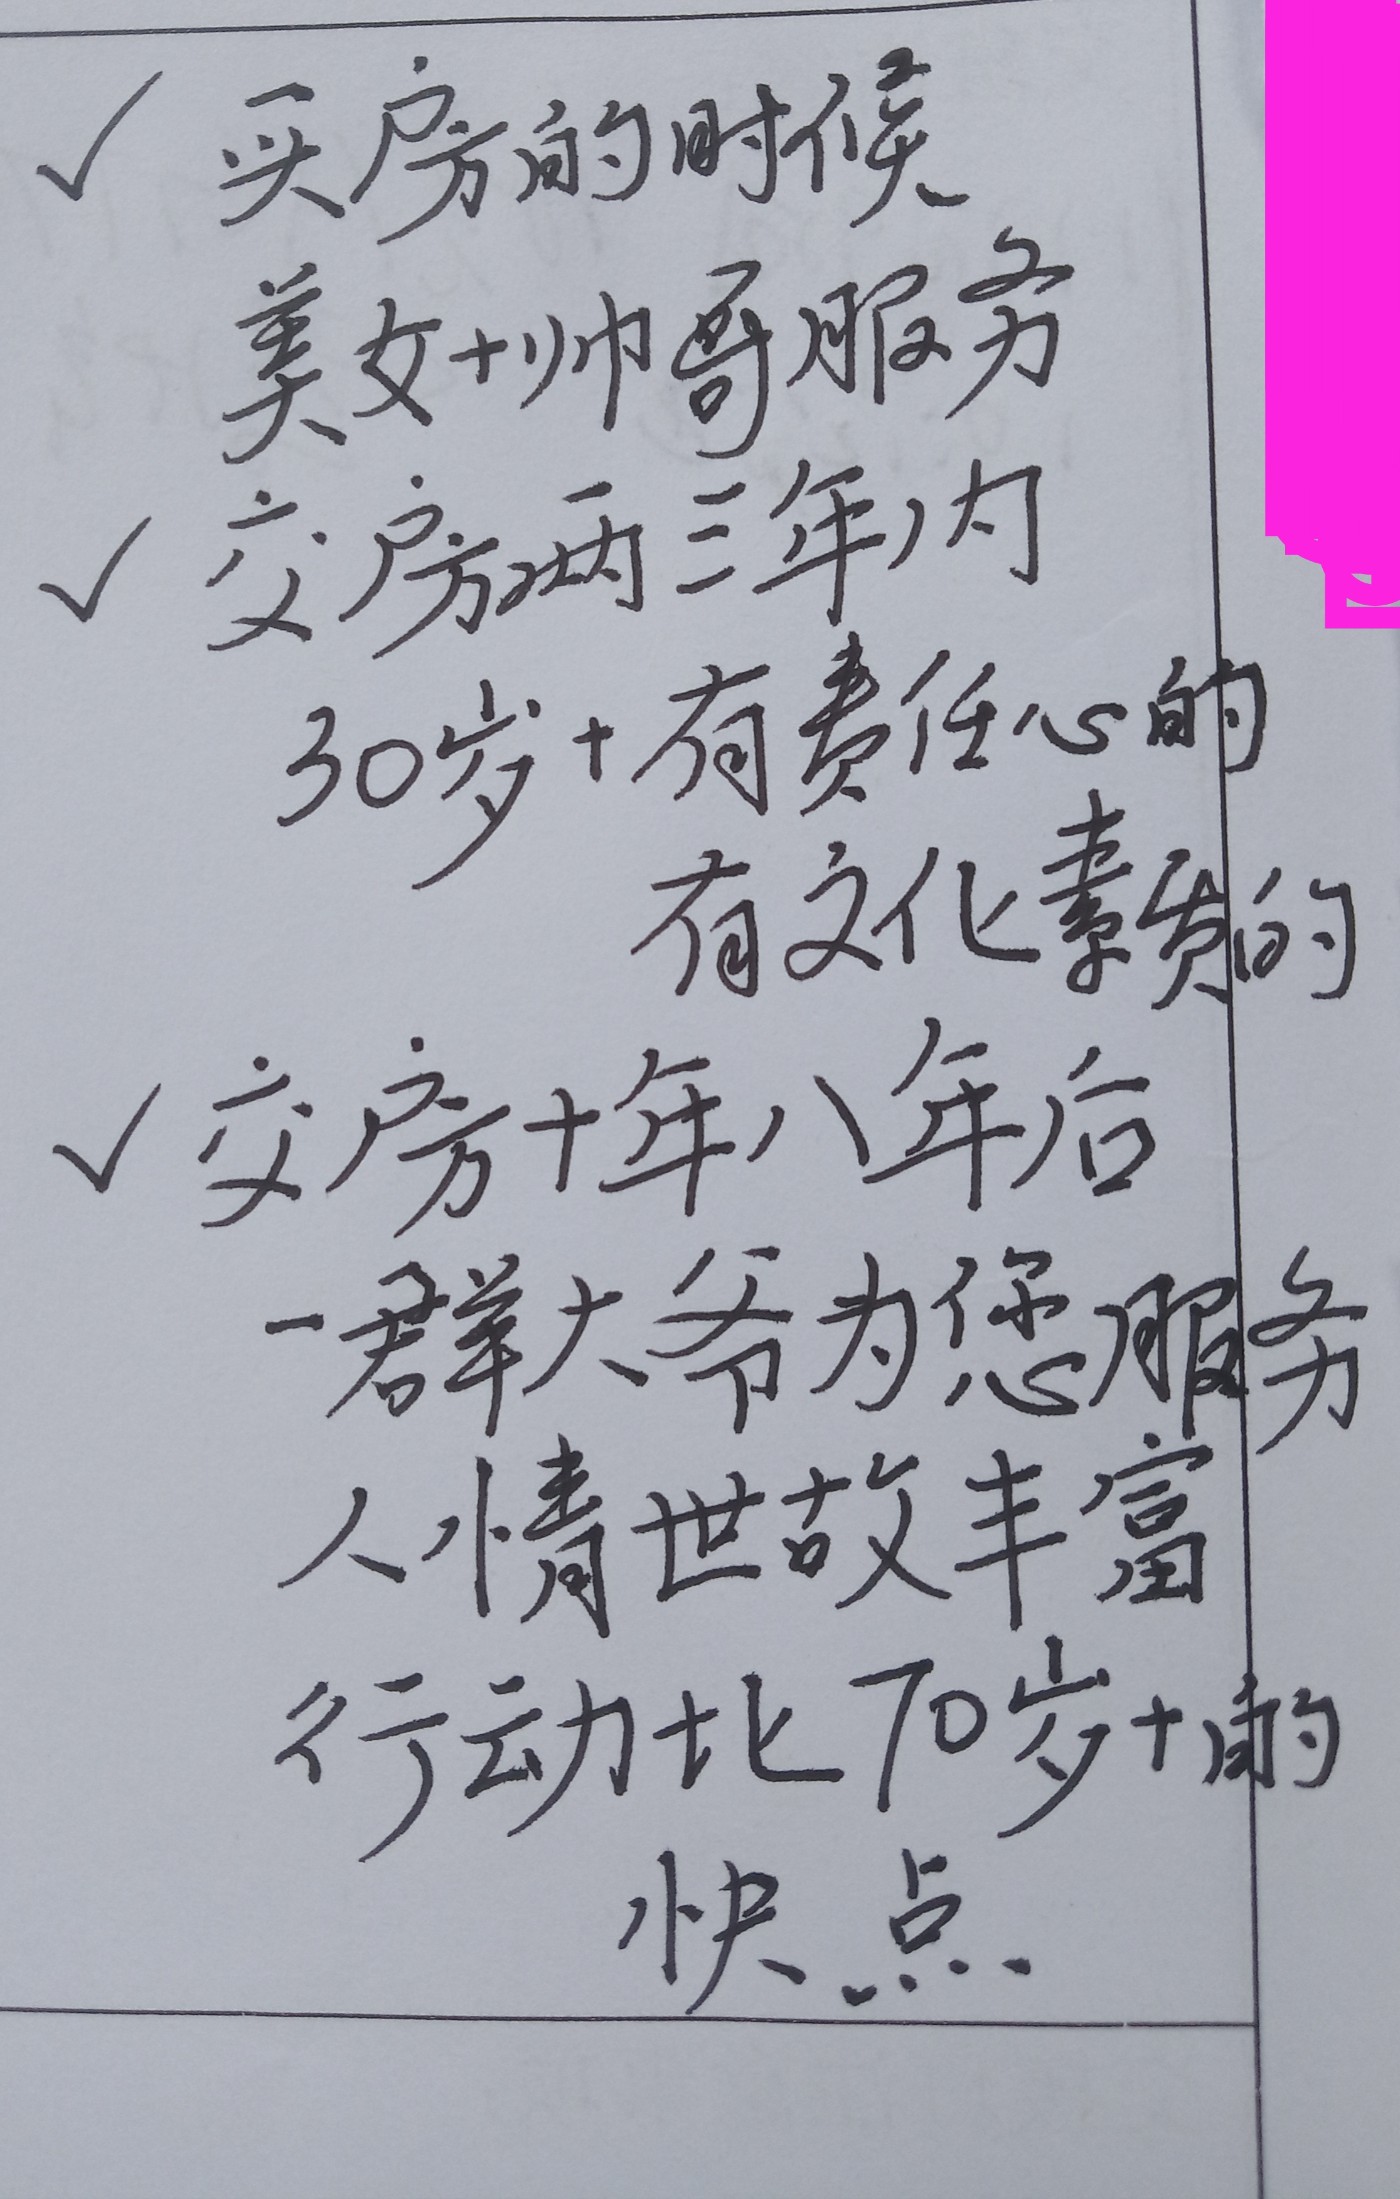 ✓ 买房的时候
美女+帅哥服务
✓ 交房两三年内
30岁+有责任心的
有文化素质的
✓ 交房十年八年后
一群大爷为您服务
人情世故丰富
行动比70岁+的
快点